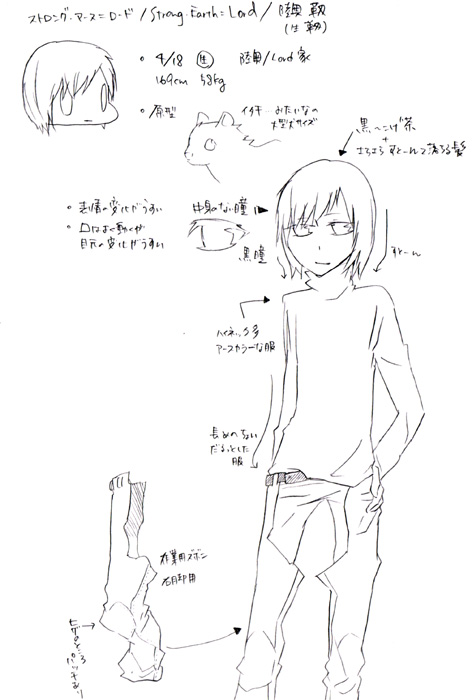 ストロング・アース=ロード / Strong・Earth=Lord / 陸奥 靱
(生 靱)
• 4/18 生 陸奥/Lord 家
169cm 58kg
• 原型
イタチ…みたいなの
大型犬サイズ
黒
茶
+
さらさら すとーんて落ちる髪
• 表情の変化がうすい
• 口はよく動くが
目元の変化がうすい
中身のない瞳
黒瞳
すとーん
ハイネック多
アースカラーな服
長めの
だるっとした
服
作業用ズボン
右脚用
ヒザのところ